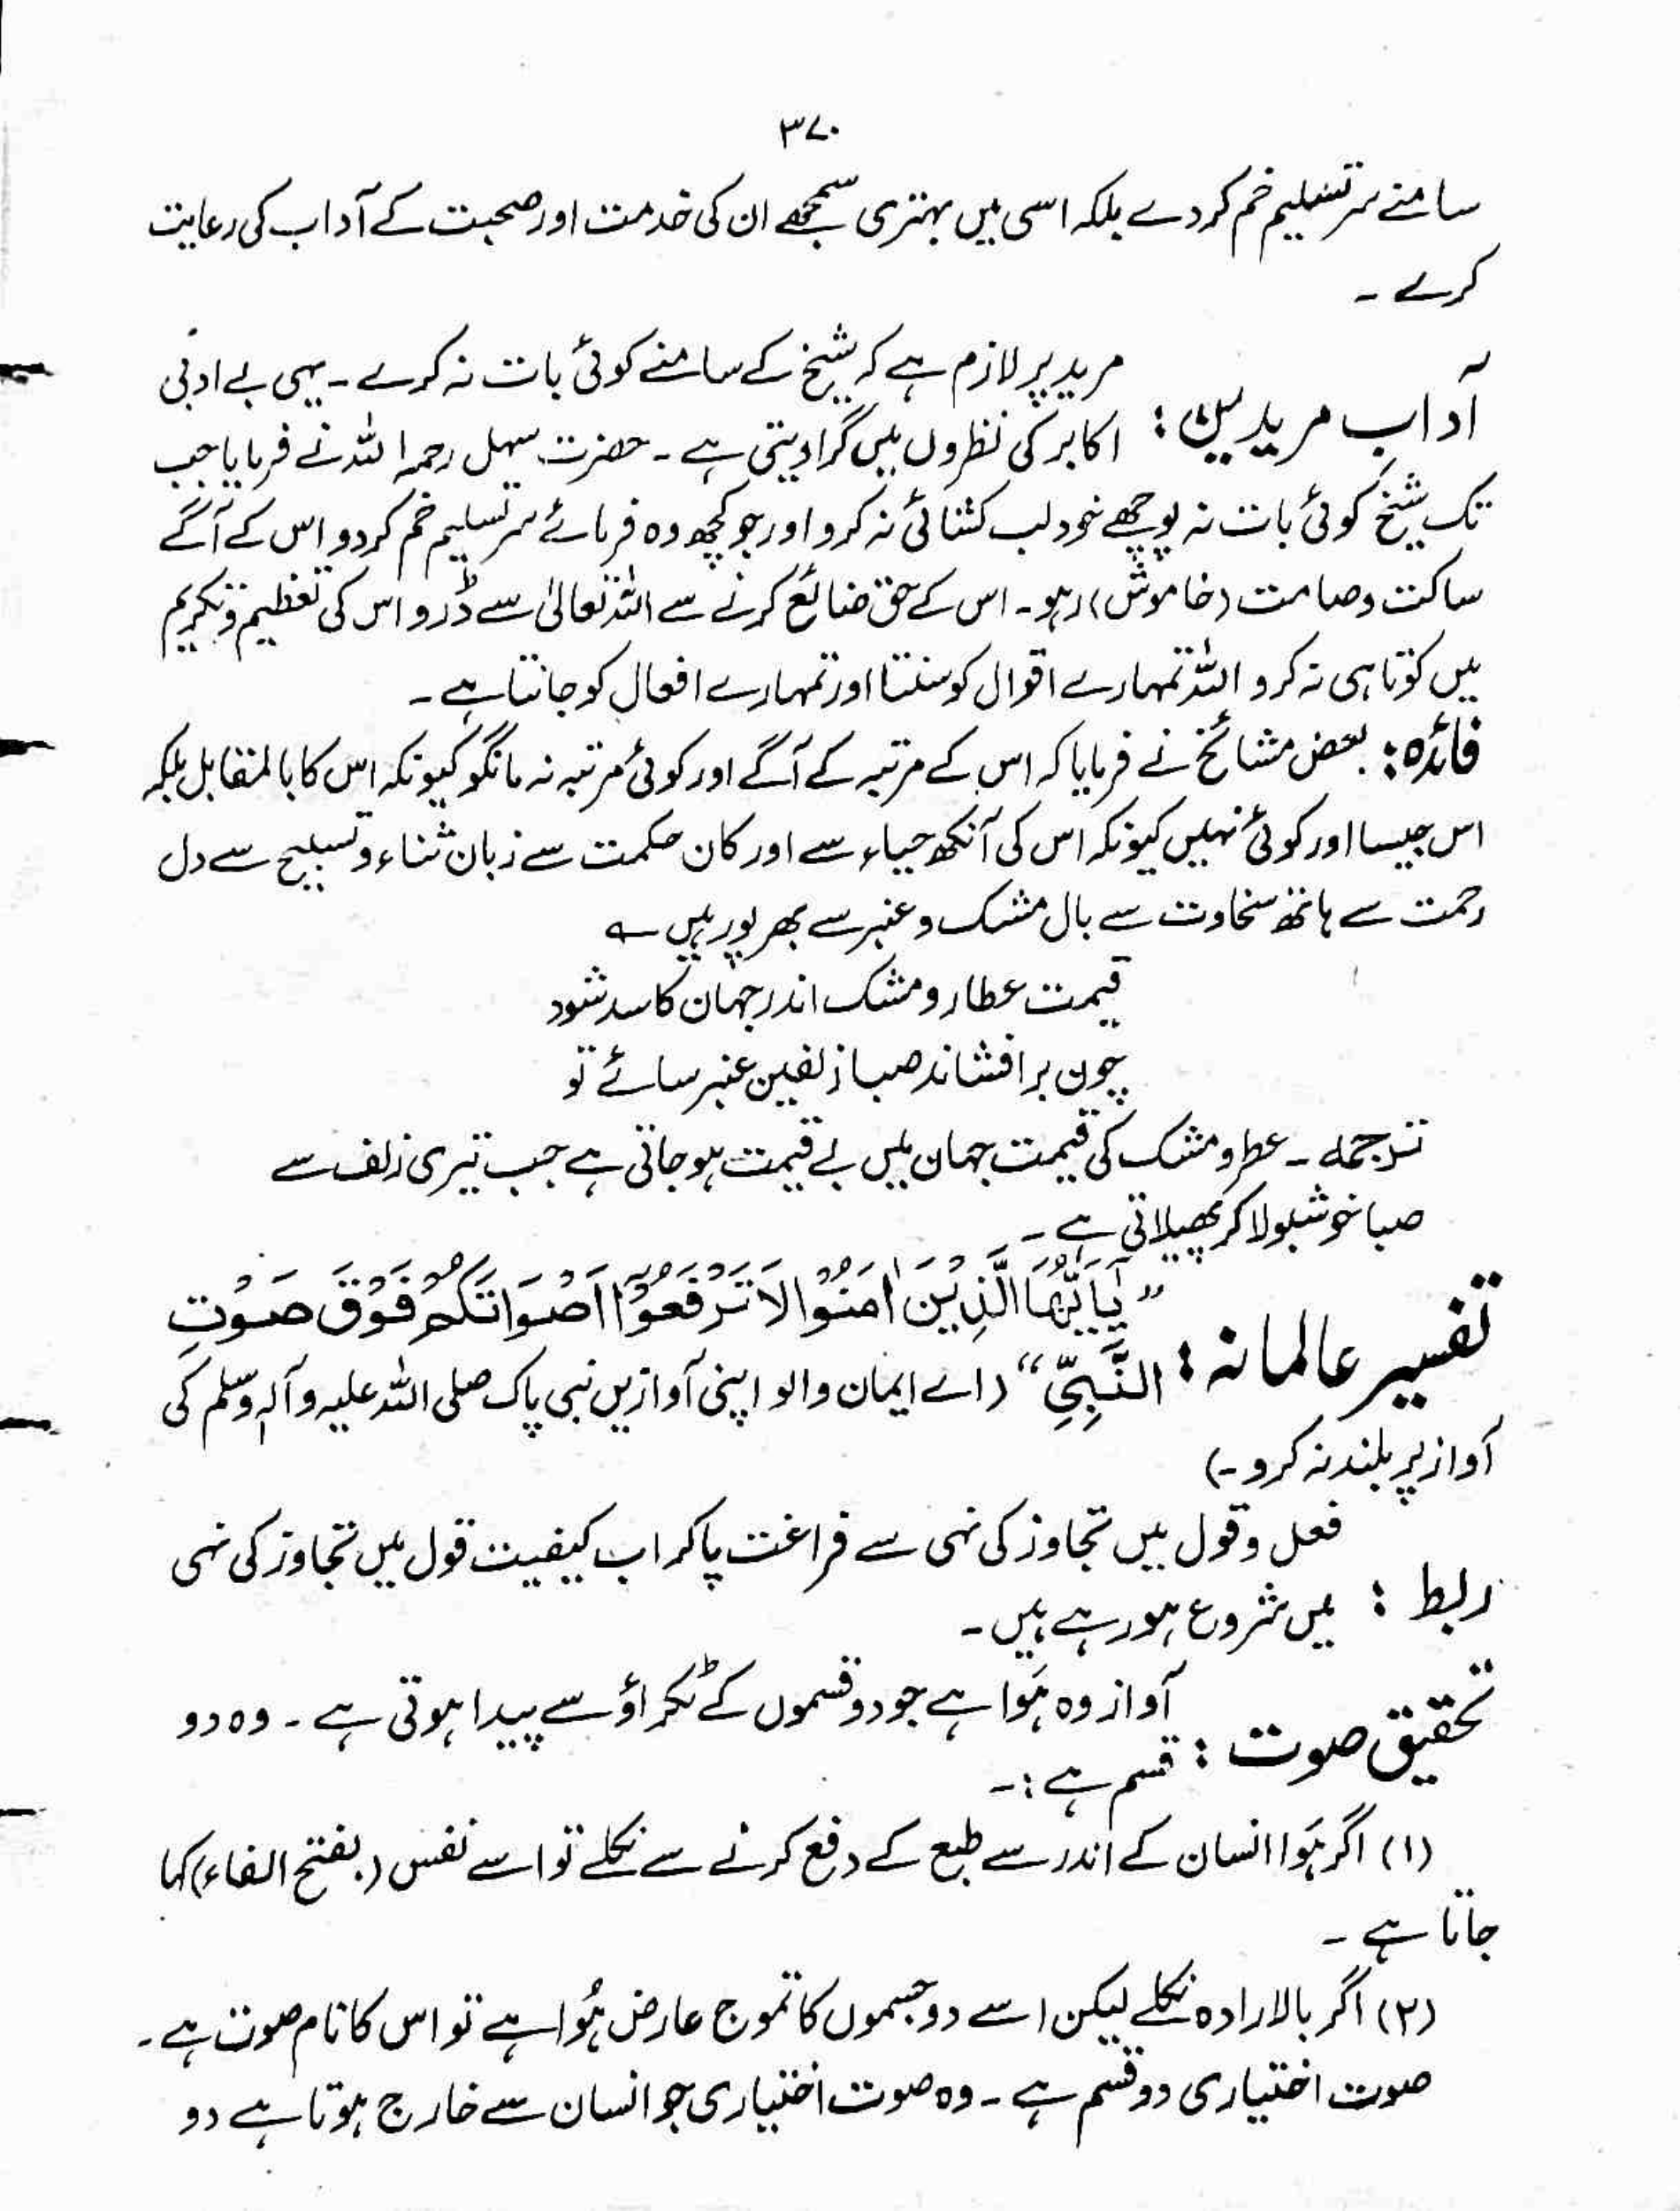 ۳۷۰
سامنے سر تسلیم خم کردے بلکہ اسی میں بہتری سمجھے ان کی خدمت اور صحبت کے آداب کی رعایت
کرے ۔
آدابِ مریدین : مرید پر لازم ہے کہ شیخ کے سامنے کوئی بات نہ کرے ۔ یہی بے ادبی
اکابر کی نظروں میں گرا دیتی ہے ۔ حضرت سہل رحمہ اللہ نے فرمایا جب
تک شیخ کوئی بات نہ پوچھے خود لب کشائی نہ کرو اور جو کچھ وہ فرمائے سر تسلیم خم کردو اس کے آگے
ساکت و صامت (خاموش) رہو ۔ اس کے حق ضائع کرنے سے اللہ تعالیٰ سے ڈرو اس کی تعظیم و تکریم
میں کوتاہی نہ کرو اللہ تمہارے اقوال کو سنتا اور تمہارے افعال کو جانتا ہے ۔
فائدہ : بعض مشائخ نے فرمایا کہ اس کے مرتبہ کے آگے اور کوئی مرتبہ نہ مانگو کیونکہ اس کا بالمقابل بلکہ
اس جیسا اور کوئی نہیں کیونکہ اس کی آنکھ حیاء سے اور کان حکمت سے زبان ثناء و تسبیح سے دل
رحمت سے ہاتھ سخاوت سے بال مشک و عنبر سے بھر پور ہیں ؎
قیمت عطار و مشک اندر جہان کاسد شود
چون بر افشاند صبا زلفین عنبر سائے تو
ترجمہ ۔ عطر و مشک کی قیمت جہان میں بے قیمت ہو جاتی ہے جب تیری زلف سے
صبا خوشبو لا کر پھیلاتی ہے ۔
تفسیر عالمانہ : ”یٰۤاَیُّهَا الَّذِیْنَ اٰمَنُوْا لَا تَرْفَعُوْۤا اَصْوَاتَكُمْ فَوْقَ صَوْتِ
النَّبِیِّ“ (اے ایمان والو اپنی آوازیں نبی پاک صلی اللہ علیہ وآلہ وسلم کی
آواز پر بلند نہ کرو ۔)
ربط : فعل و قول میں تجاوز کی نہی سے فراغت پا کر اب کیفیت قول میں تجاوز کی نہی
میں شروع ہو رہے ہیں ۔
تحقیق صوت : آواز وہ ہَوا ہے جو دو قسموں کے ٹکراؤ سے پیدا ہوتی ہے ۔ وہ دو
قسم ہے :-
(۱) اگر ہَوا انسان کے اندر سے طبع کے دفع کرنے سے نکلے تو اسے نفس (بفتح الفاء) کہا
جاتا ہے ۔
(۲) اگر بالارادہ نکلے لیکن اسے دو جسموں کا تموج عارض ہُوا ہے تو اس کا نام صوت ہے ۔
صوت اختیاری دو قسم ہے ۔ وہ صوت اختیاری جو انسان سے خارج ہوتا ہے دو